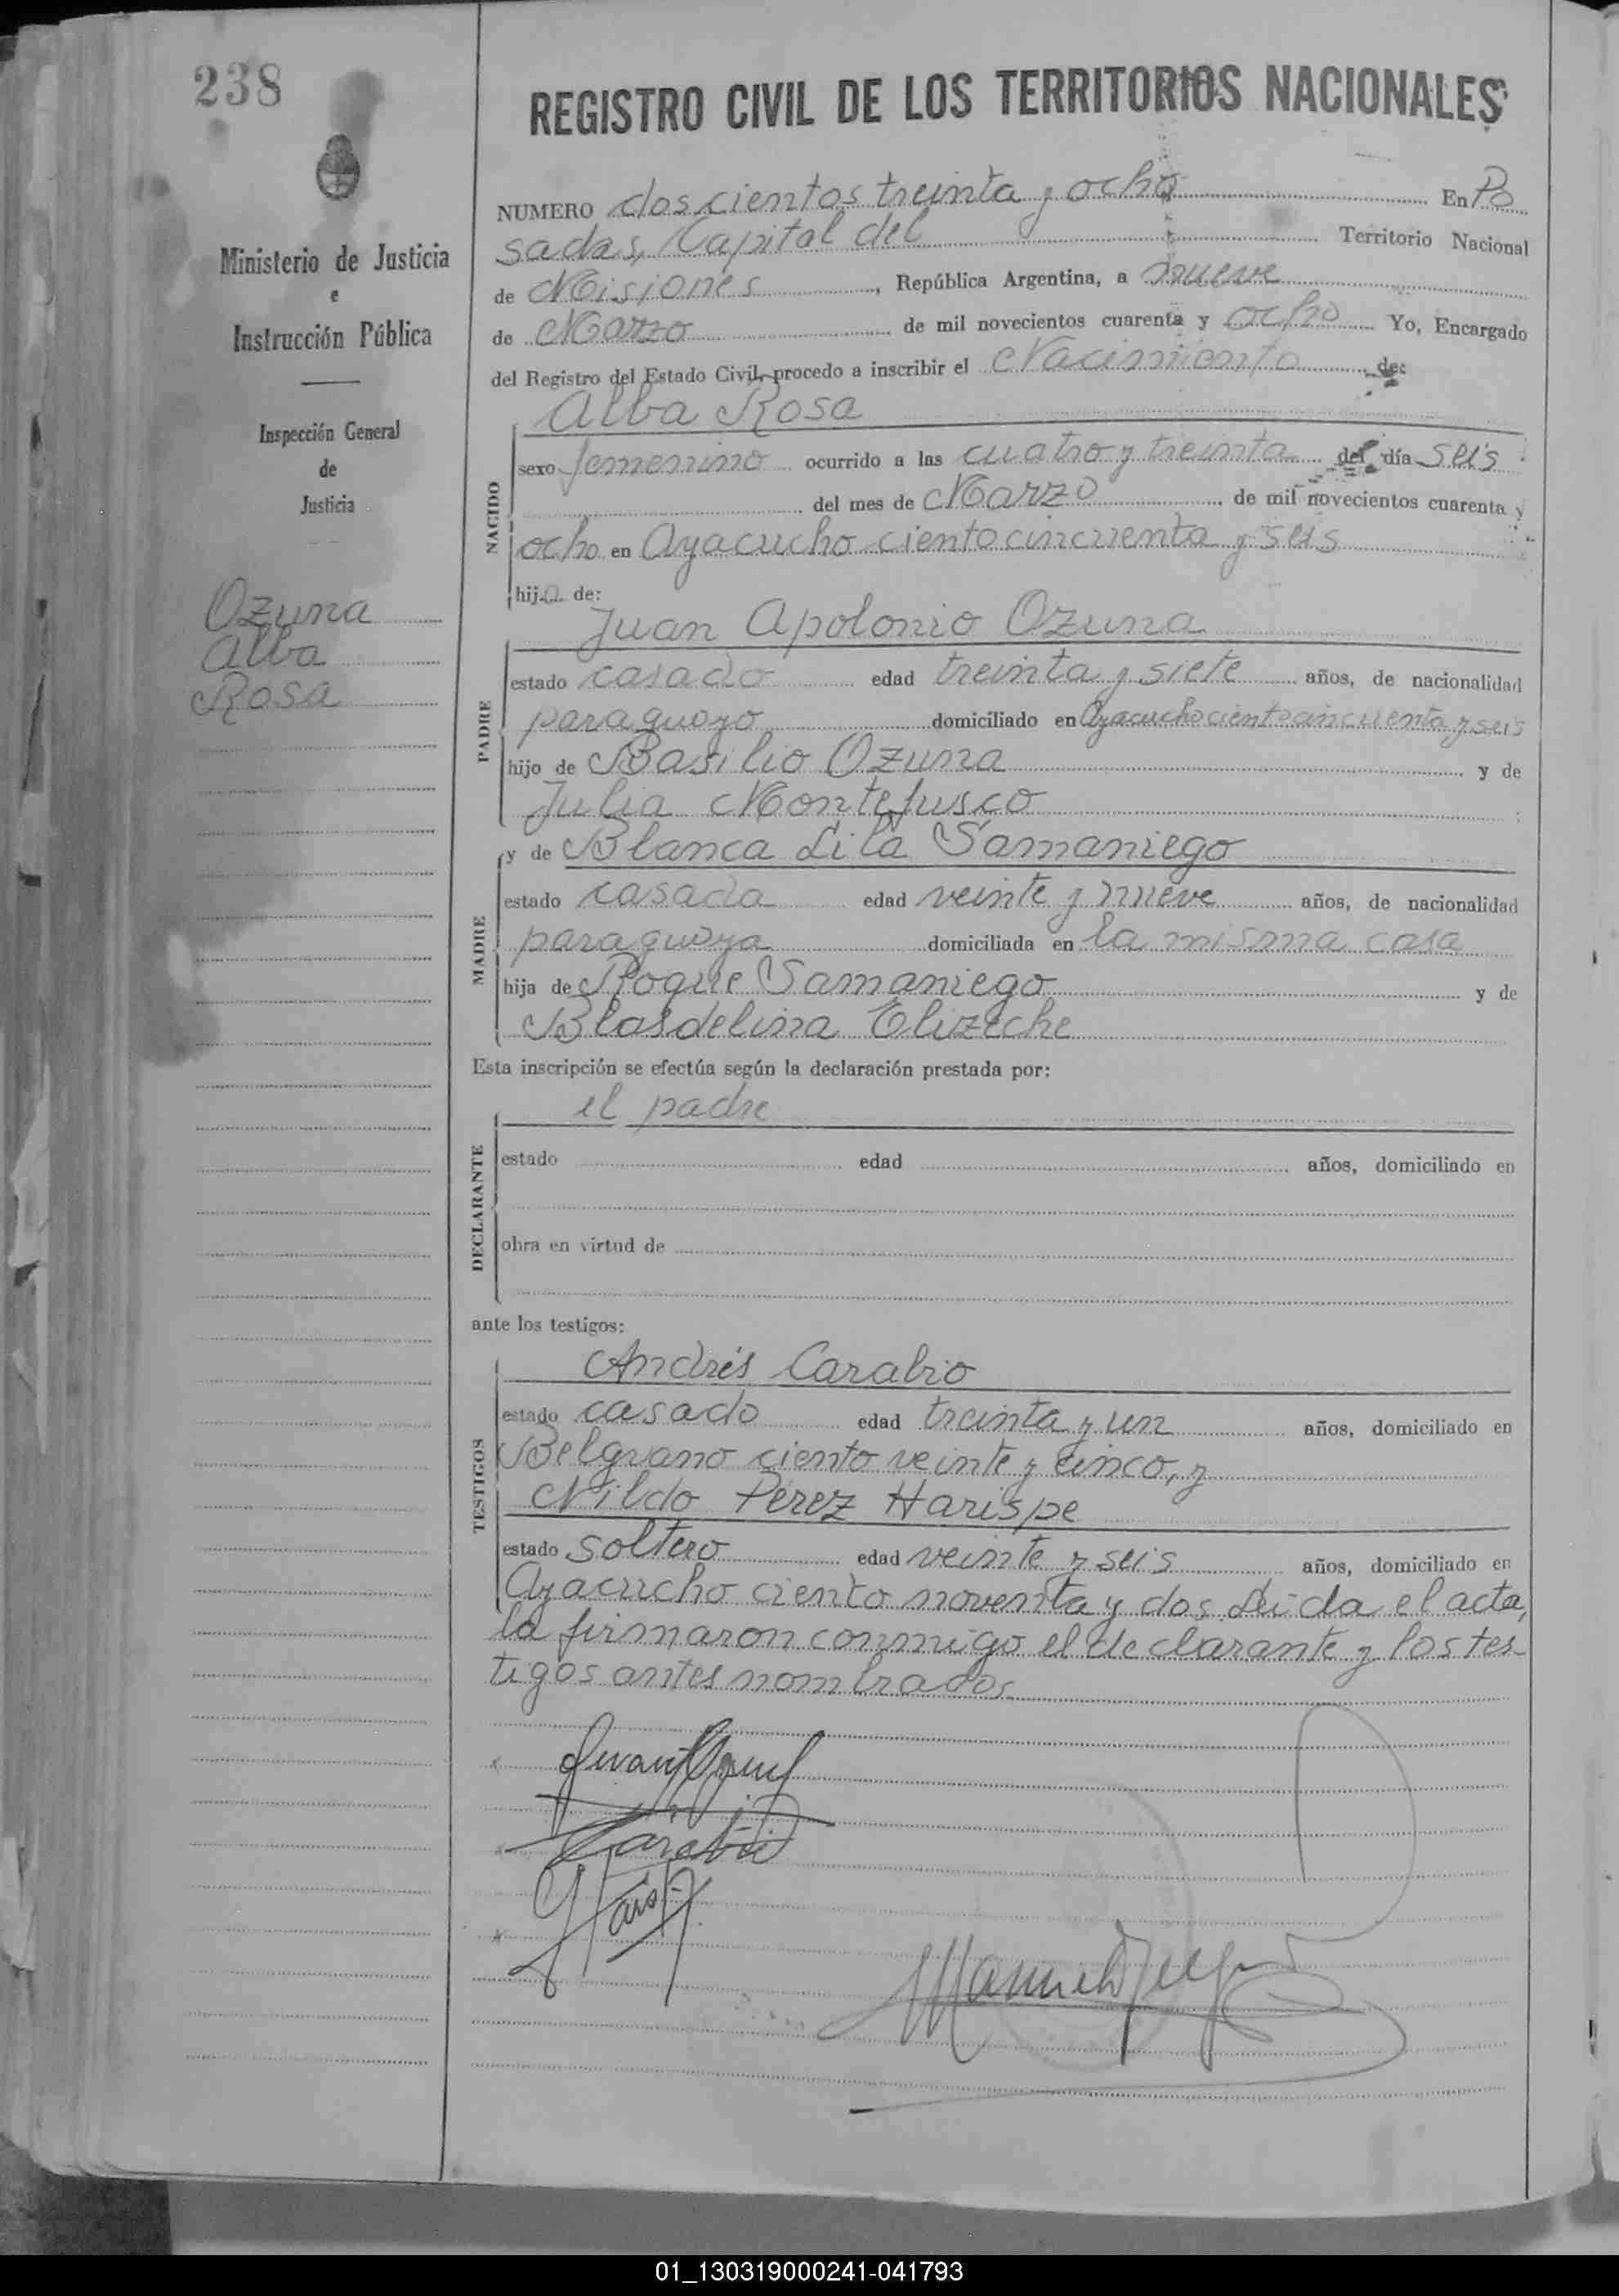 238
Ministerio de Justicia
e
Instrucción Pública
Inspección General
de
Justicia
Ozuna
Alba
Rosa
REGISTRO CIVIL DE LOS TERRITORIOS NACIONALES
NUMERO doscientos treinta y ocho En Po
sadas, Capital del Territorio Nacional
de Misiones, República Argentina, a nueve
de Marzo de mil novecientos cuarenta y ocho Yo, Encargado
del Registro del Estado Civil, procedo a inscribir el Nacimiento de:
Alba Rosa
NACIDO
sexo femenino ocurrido a las cuatro y treinta del día seis
del mes de Marzo de mil novecientos cuarenta y
ocho en Ayacucho ciento cincuenta y seis
hija de:
Juan Apolonio Ozuna
PADRE
estado casado edad treinta y siete años, de nacionalidad
paraguayo domiciliado en Ayacucho ciento cincuenta y seis
hijo de Basilio Ozuna y de
Julia Montefusco
MADRE
y de Blanca Lila Samaniego
estado casada edad veinte y nueve años, de nacionalidad
paraguaya domiciliada en la misma casa
hija de Roque Samaniego y de
Blasdelina Elizeche
Esta inscripción se efectúa según la declaración prestada por:
el padre
DECLARANTE
estado edad años, domiciliado en
obra en virtud de
ante los testigos:
Andrés Carabio
TESTIGOS
estado casado edad treinta y un años, domiciliado en
Belgrano ciento veinte y cinco, y
Nildo Pérez Harispe
estado soltero edad veinte y seis años, domiciliado en
Ayacucho ciento noventa y dos Leida el acta,
la firmaron conmigo el declarante y los tes-
tigos antes nombrados
01_130319000241-041793